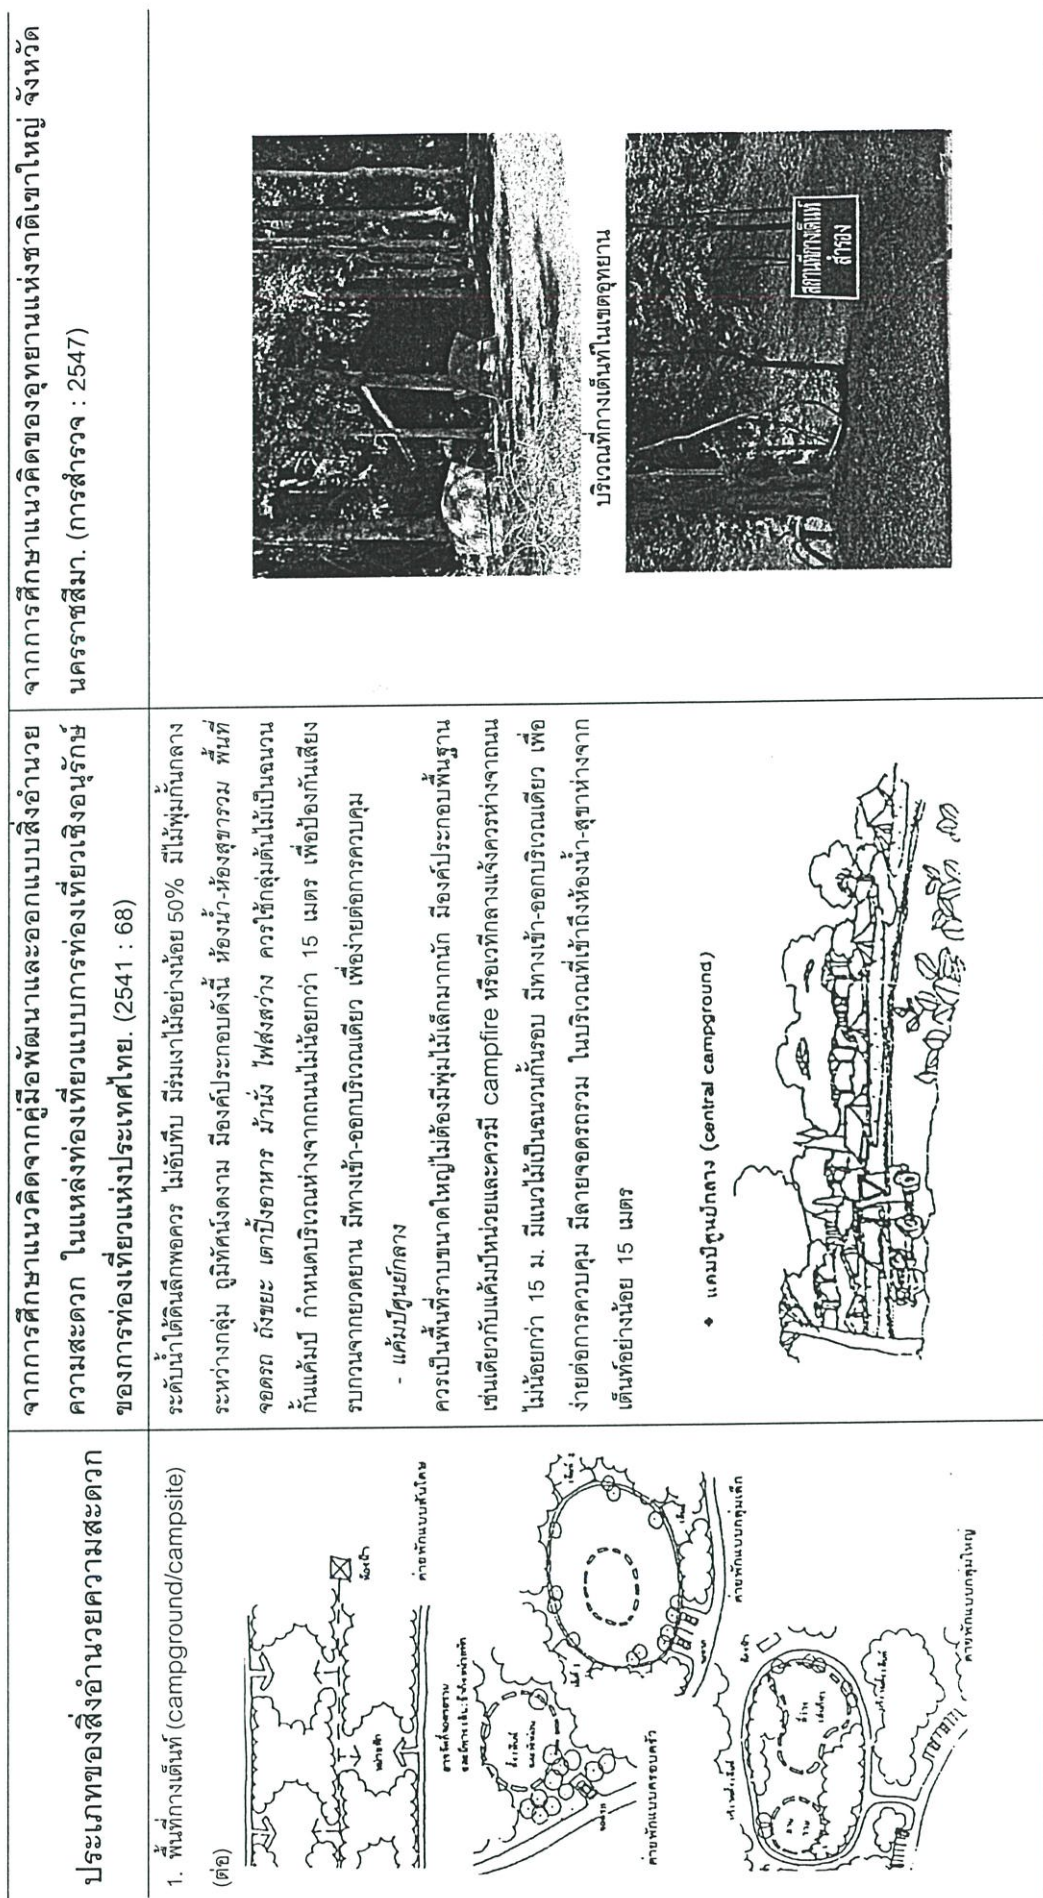 ประเภทของสิ่งอำนวยความสะดวก
จากการศึกษาแนวคิดจากคู่มือพัฒนาและออกแบบสิ่งอำนวย
ความสะดวก ในแหล่งท่องเที่ยวแบบการท่องเที่ยวเชิงอนุรักษ์
ของการท่องเที่ยวแห่งประเทศไทย. (2541 : 68)
จากการศึกษาแนวคิดของอุทยานแห่งชาติเขาใหญ่ จังหวัด
นครราชสีมา. (การสำรวจ : 2547)
1. พื้นที่กางเต็นท์ (campground/campsite)
(ต่อ)
ห้องน้ำ
ค่ายพักแบบสันโดษ
ค่ายพักแบบครอบครัว
ค่ายพักแบบกลุ่มเล็ก
ค่ายพักแบบกลุ่มใหญ่
ระดับน้ำใต้ดินลึกพอควร ไม่อับทึบ มีร่มเงาไม้อย่างน้อย 50% มีไม้พุ่มกั้นกลาง
ระหว่างกลุ่ม ภูมิทัศน์งดงาม มีองค์ประกอบดังนี้ ห้องน้ำ-ห้องสุขารวม พื้นที่
จอดรถ ถังขยะ เตาปิ้งอาหาร ม้านั่ง ไฟส่งสว่าง ควรใช้กลุ่มต้นไม้เป็นฉนวน
กั้นแค้มป์ กำหนดบริเวณห่างจากถนนไม่น้อยกว่า 15 เมตร เพื่อป้องกันเสียง
รบกวนจากยวดยาน มีทางเข้า-ออกบริเวณเดียว เพื่อง่ายต่อการควบคุม
- แค้มป์ศูนย์กลาง
ควรเป็นพื้นที่ราบขนาดใหญ่ไม่ต้องมีพุ่มไม้เล็กมากนัก มีองค์ประกอบพื้นฐาน
เช่นเดียวกับแค้มป์ใหน่วยและควรมี campfire หรือเวทีกลางแจ้งควรห่างจากถนน
ไม่น้อยกว่า 15 ม. มีแนวไม้เป็นฉนวนกั้นรอบ มีทางเข้า-ออกบริเวณเดียว เพื่อ
ง่ายต่อการควบคุม มีลายจอดรถรวม ในบริเวณที่เข้าถึงห้องน้ำ-สุขาห่างจาก
เต็นท์อย่างน้อย 15 เมตร
♦ แคมป์ศูนย์กลาง (central campground)
บริเวณที่กางเต็นท์ในเขตอุทยาน
สถานที่กางเต็นท์
สำรอง